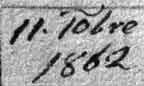 11. 10bre
1862